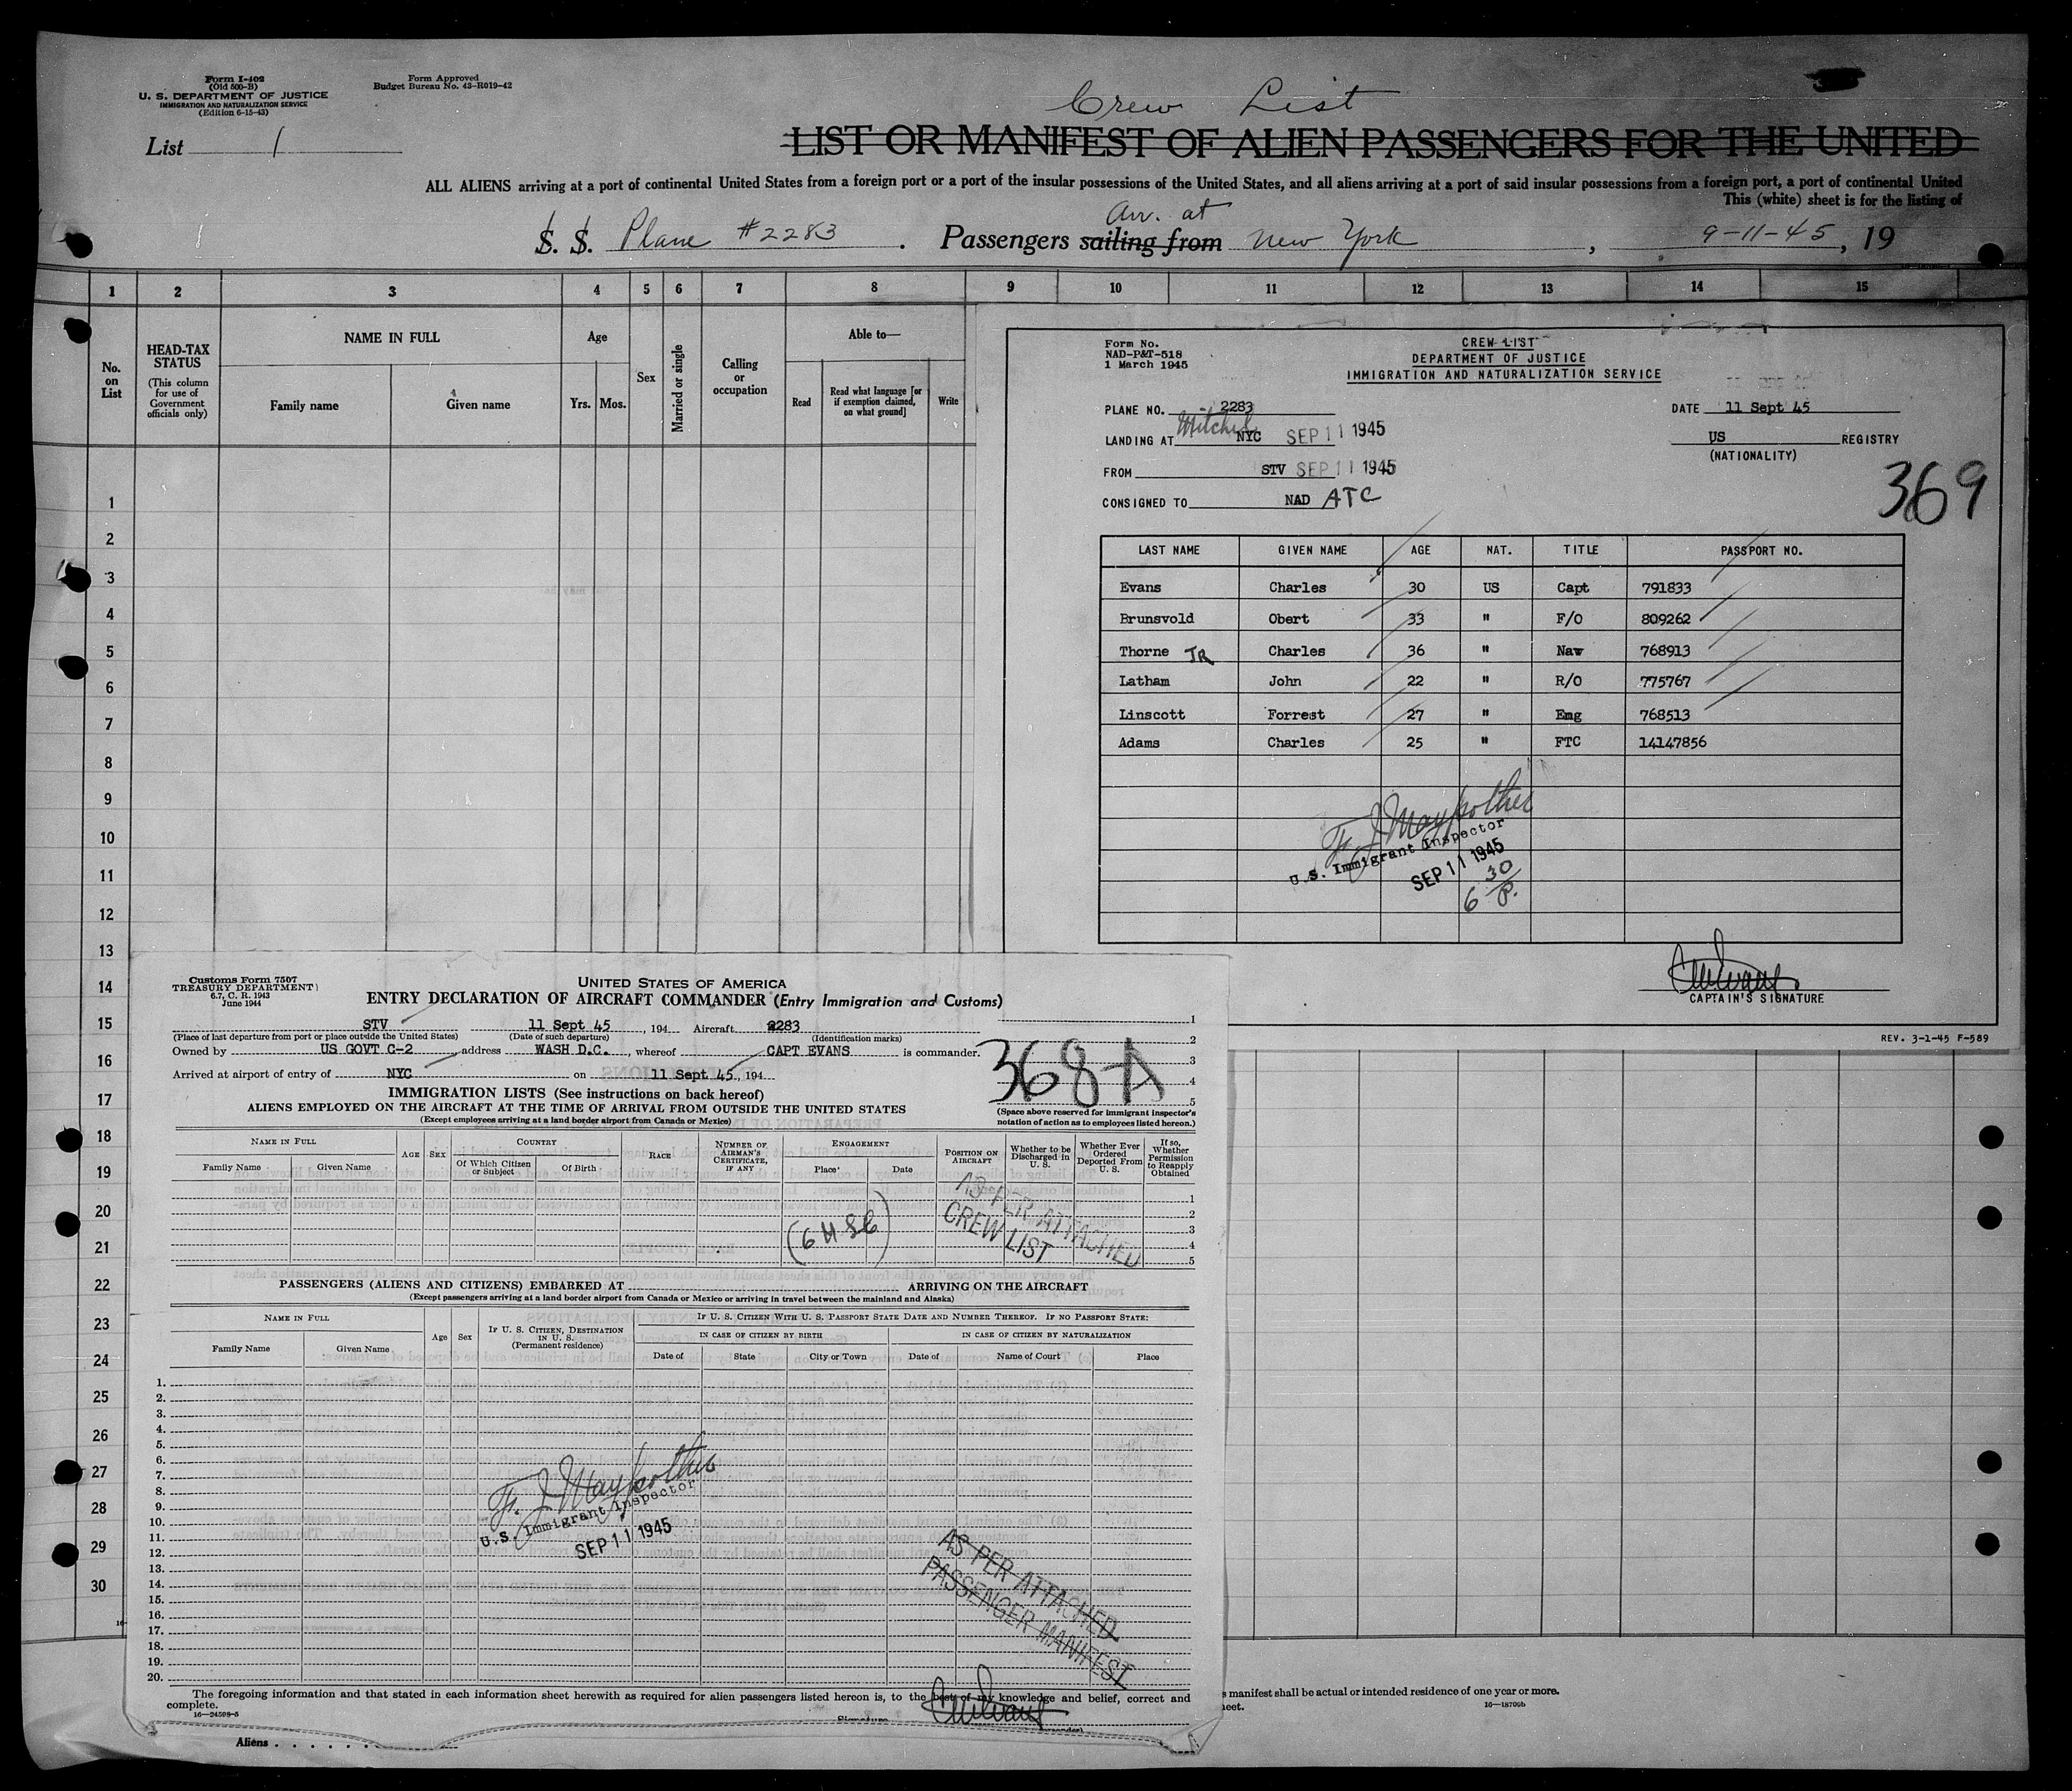 Form I-402
(Old 500-B)
U. S. DEPARTMENT OF JUSTICE
IMMIGRATION AND NATURALIZATION SERVICE
(Edition 6-15-43)
Form Approved
Budget Bureau No. 43-R019-42
List 1
Crew List
LIST OR MANIFEST OF ALIEN PASSENGERS FOR THE UNITED
ALL ALIENS arriving at a port of continental United States from a foreign port or a port of the insular possessions of the United States, and all aliens arriving at a port of said insular possessions from a foreign port, a port of continental United
This (white) sheet is for the listing of
Arr. at
S. S. Plane #2283 . Passengers sailing from New York , 9-11-45, 19
1 2 3 4 5 6 7 8 9 10 11 12 13 14 15
No. on List
HEAD-TAX STATUS
(This column for use of Government officials only)
NAME IN FULL
Family name
Given name
Age
Yrs. Mos.
Sex
Married or single
Calling or occupation
Able to—
Read
Read what language [or if exemption claimed, on what ground]
Write
1
2
3
4
5
6
7
8
9
10
11
12
13
14
15
16
17
18
19
20
21
22
23
24
25
26
27
28
29
30
Form No.
NAD-P&T-518
1 March 1945
CREW LIST
DEPARTMENT OF JUSTICE
IMMIGRATION AND NATURALIZATION SERVICE
PLANE NO. 2283
DATE 11 Sept 45
LANDING AT Mitchel NYC SEP 11 1945
US REGISTRY
(NATIONALITY)
FROM STV SEP 11 1945
369
CONSIGNED TO NAD ATC
LAST NAME GIVEN NAME AGE NAT. TITLE PASSPORT NO.
Evans Charles 30 US Capt 791833
Brunsvold Obert 33 " F/O 809262
Thorne JR Charles 36 " Nav 768913
Latham John 22 " R/O 775767
Linscott Forrest 27 " Eng 768513
Adams Charles 25 " FTC 14147856
F. J. Maypother
U.S. Immigrant Inspector
SEP 11 1945
6 30 P.
CAPTAIN'S SIGNATURE
REV. 3-1-45 F-589
Customs Form 7507
TREASURY DEPARTMENT
6.7, C. R. 1943
June 1944
UNITED STATES OF AMERICA
ENTRY DECLARATION OF AIRCRAFT COMMANDER (Entry Immigration and Customs)
STV 11 Sept 45, 194 Aircraft 2283
(Place of last departure from port or place outside the United States) (Date of such departure) (Identification marks)
Owned by US GOVT C-2, address WASH D.C., whereof CAPT EVANS is commander.
Arrived at airport of entry of NYC on 11 Sept 45, 194
1
2
3
4
5
368-A
IMMIGRATION LISTS (See instructions on back hereof)
ALIENS EMPLOYED ON THE AIRCRAFT AT THE TIME OF ARRIVAL FROM OUTSIDE THE UNITED STATES
(Except employees arriving at a land border airport from Canada or Mexico)
(Space above reserved for immigrant inspector's notation of action as to employees listed hereon.)
NAME IN FULL
Family Name
Given Name
AGE
SEX
COUNTRY
Of Which Citizen or Subject
Of Birth
RACE
NUMBER OF AIRMAN'S CERTIFICATE, IF ANY
ENGAGEMENT
Place
Date
POSITION ON AIRCRAFT
Whether to be Discharged in U. S.
Whether Ever Ordered Deported From U. S.
If so, Whether Permission to Reapply Obtained
1
2
3
4
5
AS PER ATTACHED
CREW LIST
PASSENGERS (ALIENS AND CITIZENS) EMBARKED AT ARRIVING ON THE AIRCRAFT
(Except passengers arriving at a land border airport from Canada or Mexico or arriving in travel between the mainland and Alaska)
NAME IN FULL
Family Name
Given Name
Age
Sex
IF U. S. CITIZEN, DESTINATION IN U. S.
(Permanent residence)
IF U. S. CITIZEN WITH U. S. PASSPORT STATE DATE AND NUMBER THEREOF. IF NO PASSPORT STATE:
IN CASE OF CITIZEN BY BIRTH
IN CASE OF CITIZEN BY NATURALIZATION
Date of
State
City or Town
Date of
Name of Court
Place
1.
2.
3.
4.
5.
6.
7.
8.
9.
10.
11.
12.
13.
14.
15.
16.
17.
18.
19.
20.
F. J. Maypother
U.S. Immigrant Inspector
SEP 11 1945
AS PER ATTACHED
PASSENGER MANIFEST
The foregoing information and that stated in each information sheet herewith as required for alien passengers listed hereon is, to the best of my knowledge and belief, correct and
complete.
16—24598-5
Signature
Aliens
manifest shall be actual or intended residence of one year or more.
16—18700b